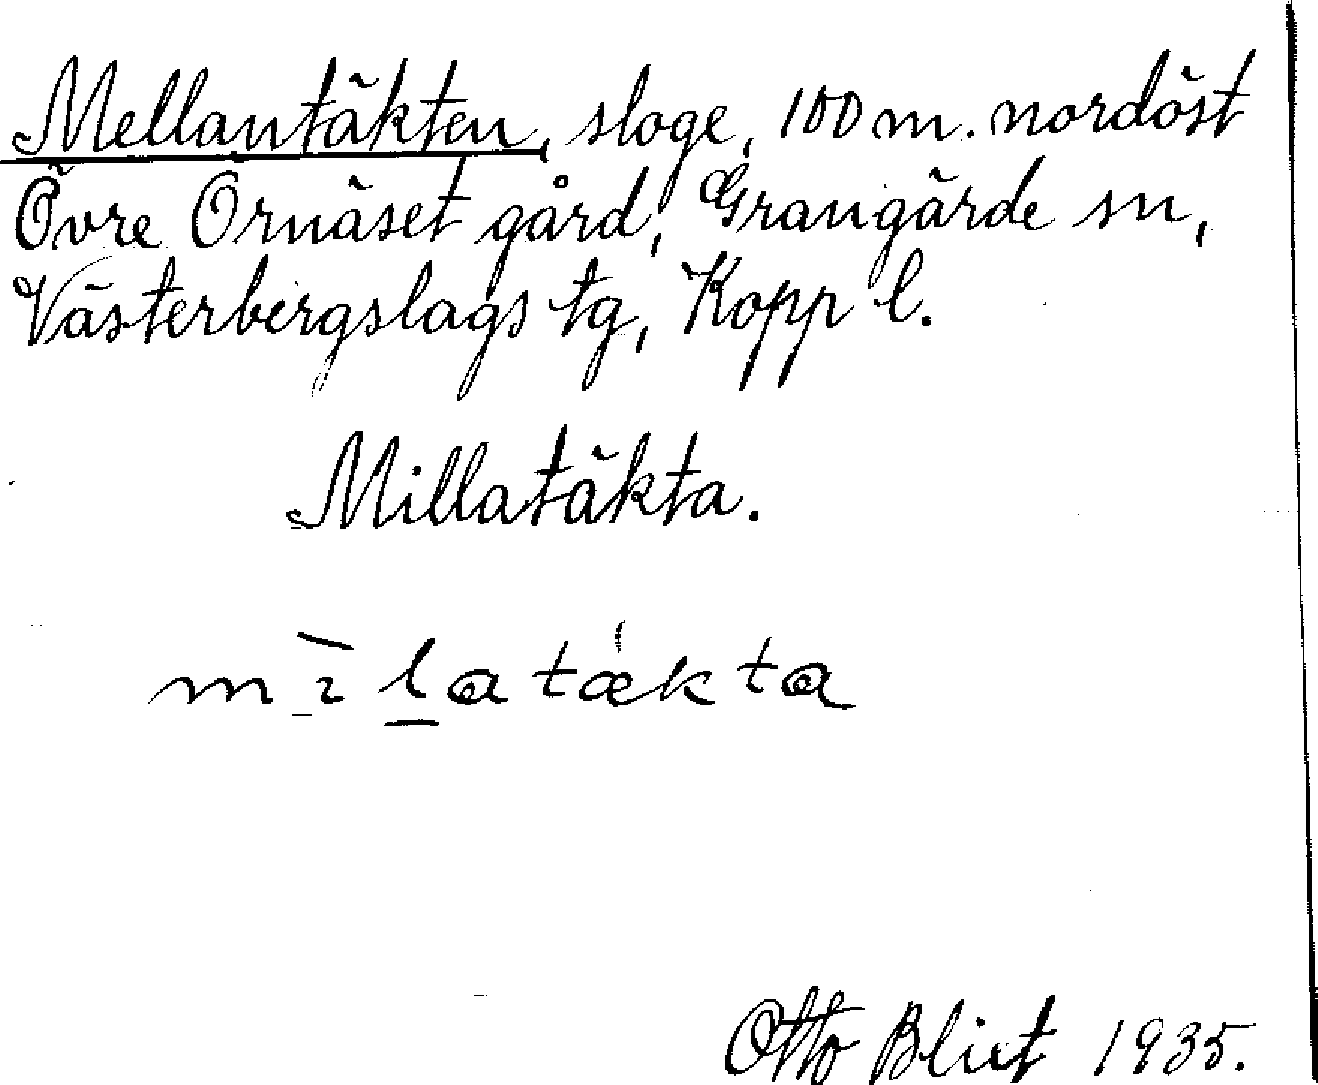 Mellantäkten, sloge, 100 m. nordöst
Övre Ornäset gård, Grangärde sn,
Västerbergslags tg, Kopp l.
Millatäkta.
Otto Blixt 1935.